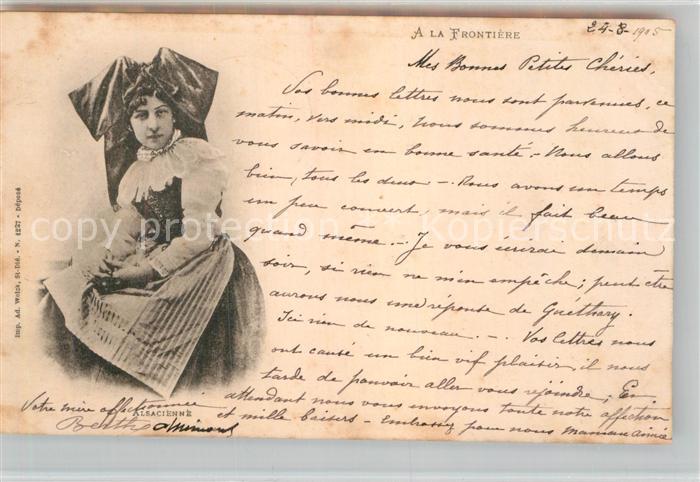 A LA FRONTIÈRE
24-8-1905
Mes Bonnes Petites Chéries,
Vos bonnes lettres nous sont parvenues, ce
matin, vers midi, nous sommes heureux de
vous savoir en bonne santé - Nous allons
bien, tous les deux - Nous avons un temps
un peu couvert, mais il fait beau
quand même - Je vous écrirai demain
soir, si rien ne m'en empêche; peut être
aurons nous une réponse de Guéthary.
Ici rien de nouveau - Vos lettres nous
ont causé un bien vif plaisir, il nous
tarde de pouvoir aller vous rejoindre; En
attendant nous vous envoyons toute notre affection
et mille baisers - Embrassez pour nous maman aimée
Votre mère affectionnée
Berthe
ALSACIENNE
Imp. Ad. Weick, St-Dié. - N. 4227 - Déposé
copy protection for watermark